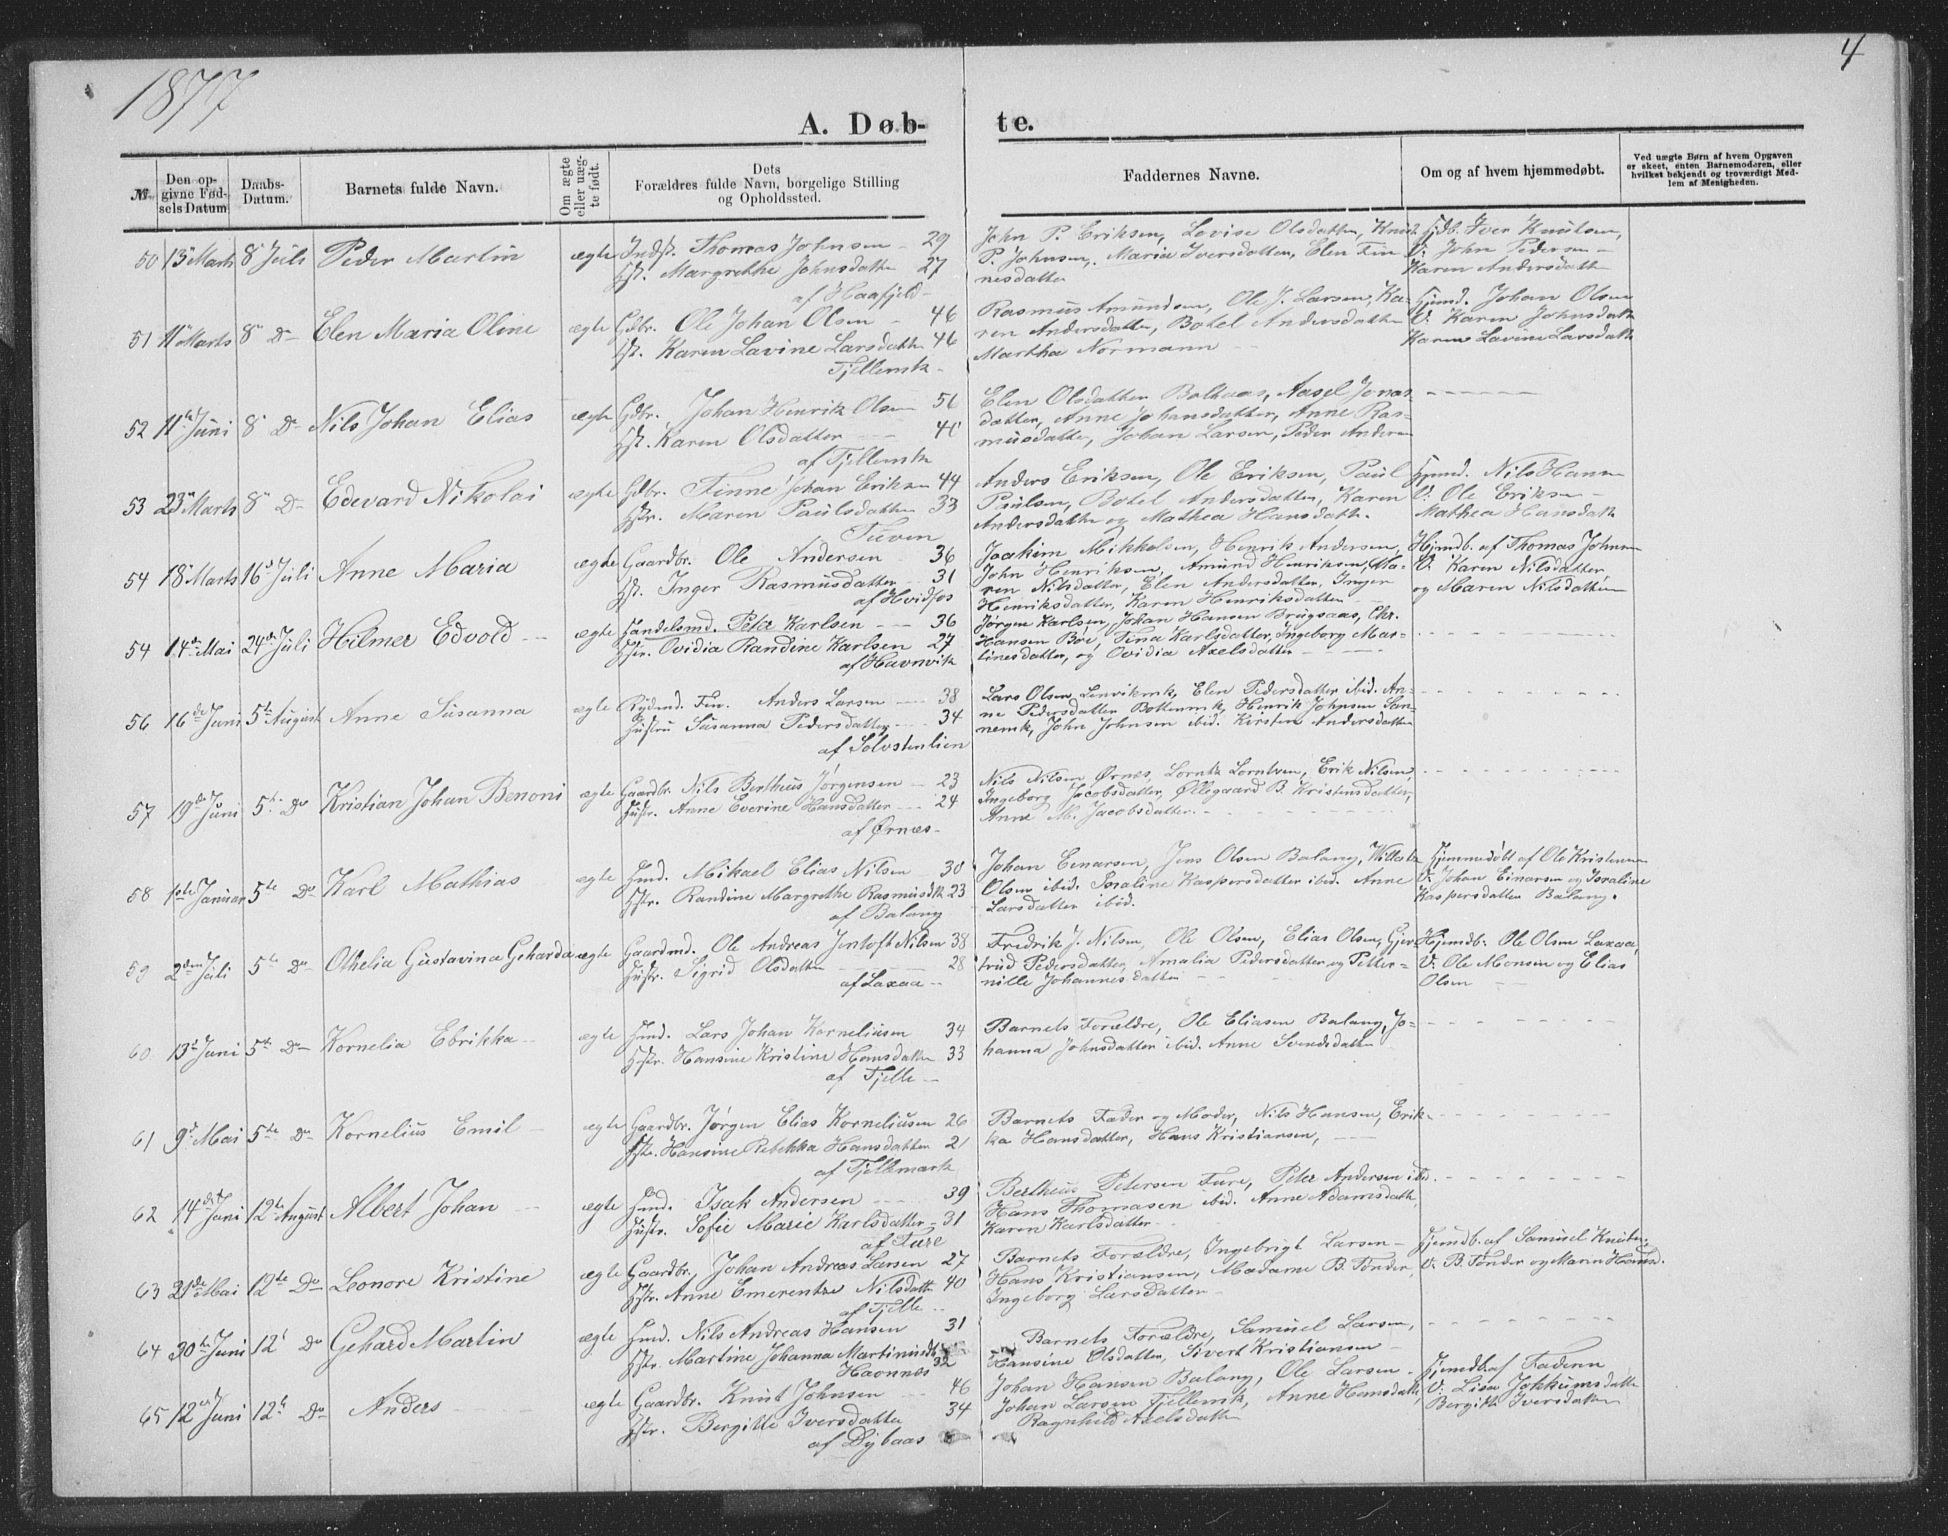 1877
4
A. Døb-
te.
№
Den op-
givne Fød-
sels Datum
Daabs-
Datum.
Barnets fulde Navn.
Om ægte
eller uæg-
te født.
Dets
Forældres fulde Navn, borgelige Stilling
og Opholdssted.
Faddernes Navne.
Om og af hvem hjemmedøbt.
Ved uægte Børn af hvem Opgaven
er skeet, enten Barnemoderen, eller
hvilket bekjendt og troværdigt Med-
lem af Menigheden.
50 13 Marts 8 Juli Peder Martin ægte Indst. Thomas Johnsen - 29
Hst. Margrethe Johnsdatter 27
af Haafjeld
John P. Eriksen, Lovise Olsdatter, Knut
P. Johnsen, Maria Iversdatter, Elen Fin
nesdatter
Hjdb. Iver Knutsen,
V. John Pedersen
Karen Andersdatter
51 11 Marts 8 D Elen Maria Oline ægte Gdbr. Ole Johan Olsen - 46
Hst. Karen Lavine Larsdatter 46
Tjellemrk
Rasmus Amundsen, Ole J. Larsen, Ka-
ren Andersdatter, Botel Andersdatter
Martha Normann
Hjemd. Johan Olsen
V. Karen Johnsdatt
Karen Lavine Larsdatt
52 11te Juni 8 D Nils Johan Elias ægte Gdbr. Johan Henrik Olsen 56
Hst. Karen Olsdatter
af Tjellemrk
Elen Olsdatter Balhaas, Aasel Jonas
datter, Anne Johansdatter, Anne Ras-
musdatter, Johan Larsen, Peder Andersen
53 23 Marts 8 D Edevard Nikolai ægte Gdbr. Finne Johan Eriksen 44
Hstr. Maren Paulsdatter 33
Anders Eriksen, Ole Eriksen, Paul
Paulsen, Botel Andersdatter, Karen
Andersdatter og Mathea Hansdatter.
Hjemd. Nils Hansen
V. Ole Eriksen
Mathea Hansdatt
54 18 Marts 16 Juli Anne Maria ægte Gaardbr. Ole Andersen 36
Hst. Inger Rasmusdatter 31
af Hvidfos
Joakim Mikkelsen, Henrik Andersen,
John Henriksen, Amund Henriksen, Ma-
ren Nilsdatter, Elen Andersdatter, Inger
Henriksdatter, Karen Henriksdatter
Hjemdb. af Thomas Johnsen
V. Karen Nilsdatter
og Maren Nilsdatter
54 14de Mai 24de Juli Hilmer Edvold ægte Handelsmd. Peter Karlsen 36
Hstr. Ovidia Randine Karlsen 27
af Havnvik
Jørgen Karlsen, Johan Hansen Brugsaas, Chr.
Hansen Boe, Fina Karlsdatter, Ingeborg Mar-
tinesdatter, og Ovidia Axelsdatter
56 16de Juni 5te August Anne Susanna ægte Rydmd. Fin. Anders Larsen 38
Hustru Susanna Pedersdatter 34
af Solvstenlien
Lars Olsen Lenvikmrk, Elen Pedersdatter ibid. An-
ne Pedersdatter Bottenmrk, Henrik Johnsen San-
nemrk, John Johnsen ibid. Kirsten Andersdatter
57 19de Juni 5te Do Kristian Johan Benoni ægte Gaardbr. Nils Bertheus Jørgensen 23
Hustr. Anne Everine Hansdatter 24
af Ørnes
Nils Nilsen Ørnes, Lorntz Lorntzen, Erik Nilsen,
Ingeborg Jacobsdatter, Ollegaard B. Kristensdatter,
Anne M. Jacobsdatter.
58 1ste Januar 5te Do Karl Mathias ægte Hmd. Mikael Elias Nilsen 30
Hstr. Randine Margrethe Rasmusdtr 23
af Balang
Johan Einarsen, Jens Olsen Balang,
Olsen ibid. Israline Kaspersdatter ibid. Anne
Larsdatter ibid.
Hjemmedøbt af Ole Kristensen
V. Johan Einarsen og Israline
Kaspersdatter Balang.
59 2den Juli 5te Do Othelia Gustavina Geharda ægte Gaardmd. Ole Andreas Jentoft Nilsen 38
Hustr. Sigrid Olsdatter 28
af Laxaa
Fredrik J. Nilsen, Ole Olsen, Elias Olsen, Gjer-
trud Pedersdatter, Amalia Pedersdatter og Petter-
nille Johannesdatter
Hjemdb. Ole Olsen Laxaa,
V. Ole Monsen og Elias
Olsen
60 13de Juni 5te Do Kornelia Ebrikka ægte Hmd. Lars Johan Korneliusen 34
Hstr. Hansine Kristine Hansdatter 33
af Tjelle
Barnets Forældre, Ole Eliasen Balang, Jo-
hanna Johnsdatter ibid. Anne Svendsdatter
61 9de Mai 5te Do Kornelius Emil ægte Gaardbr. Jørgen Elias Korneliusen 26
Hstr. Hansine Rebekka Hansdatter 21
af Tjellemark
Barnets Fader og Moder, Nils Hansen, Erik-
ka Hansdatter, Hans Kristiansen,
62 14de Juni 12te August Albert Johan ægte Hmd. Isak Andersen 39
Hustr. Sofie Marie Karlsdatter 31
af Fure
Bertheus Petersen Fure, Peter Andersen ibid.
Hans Thomasen ibid. Anne Adamsdatter,
Karen Karlsdatter
63 21de Mai 12te Do Leonore Kristine ægte Gaardbr. Johan Andreas Larsen 27
Hstr. Anne Emerentze Nilsdatter 40
af Tjelle
Barnets Forældre, Ingebrigt Larsen
Hans Kristiansen, Madame B. Tønder,
Ingeborg Larsdatter
Hjemdb. af Samuel Knutsen
V. B. Tønder og Maren Hansd.
64 30te Juni 12te Do Gehard Martin ægte Hmd. Nils Andreas Hansen 31
Hstr. Martine Johanna Martinusdtr
Havnnes 32
Barnets Forældre, Samuel Larsen,
Hansine Olsdatter, Sivert Kristiansen
65 12te Juni 12te Do Anders ægte Gaardbr. Knut Johnsen 46
Hstr. Bergitte Iversdatter 34
af Dybaas
Johan Hansen Balang, Ole Larsen
Johan Larsen Tjellemrk, Anne Hansdatter,
Ragnhild Axelsdatter
Hjemdb. af Faderen
V. Lisa Jokkumsdatter
Bergitte Iversdatter